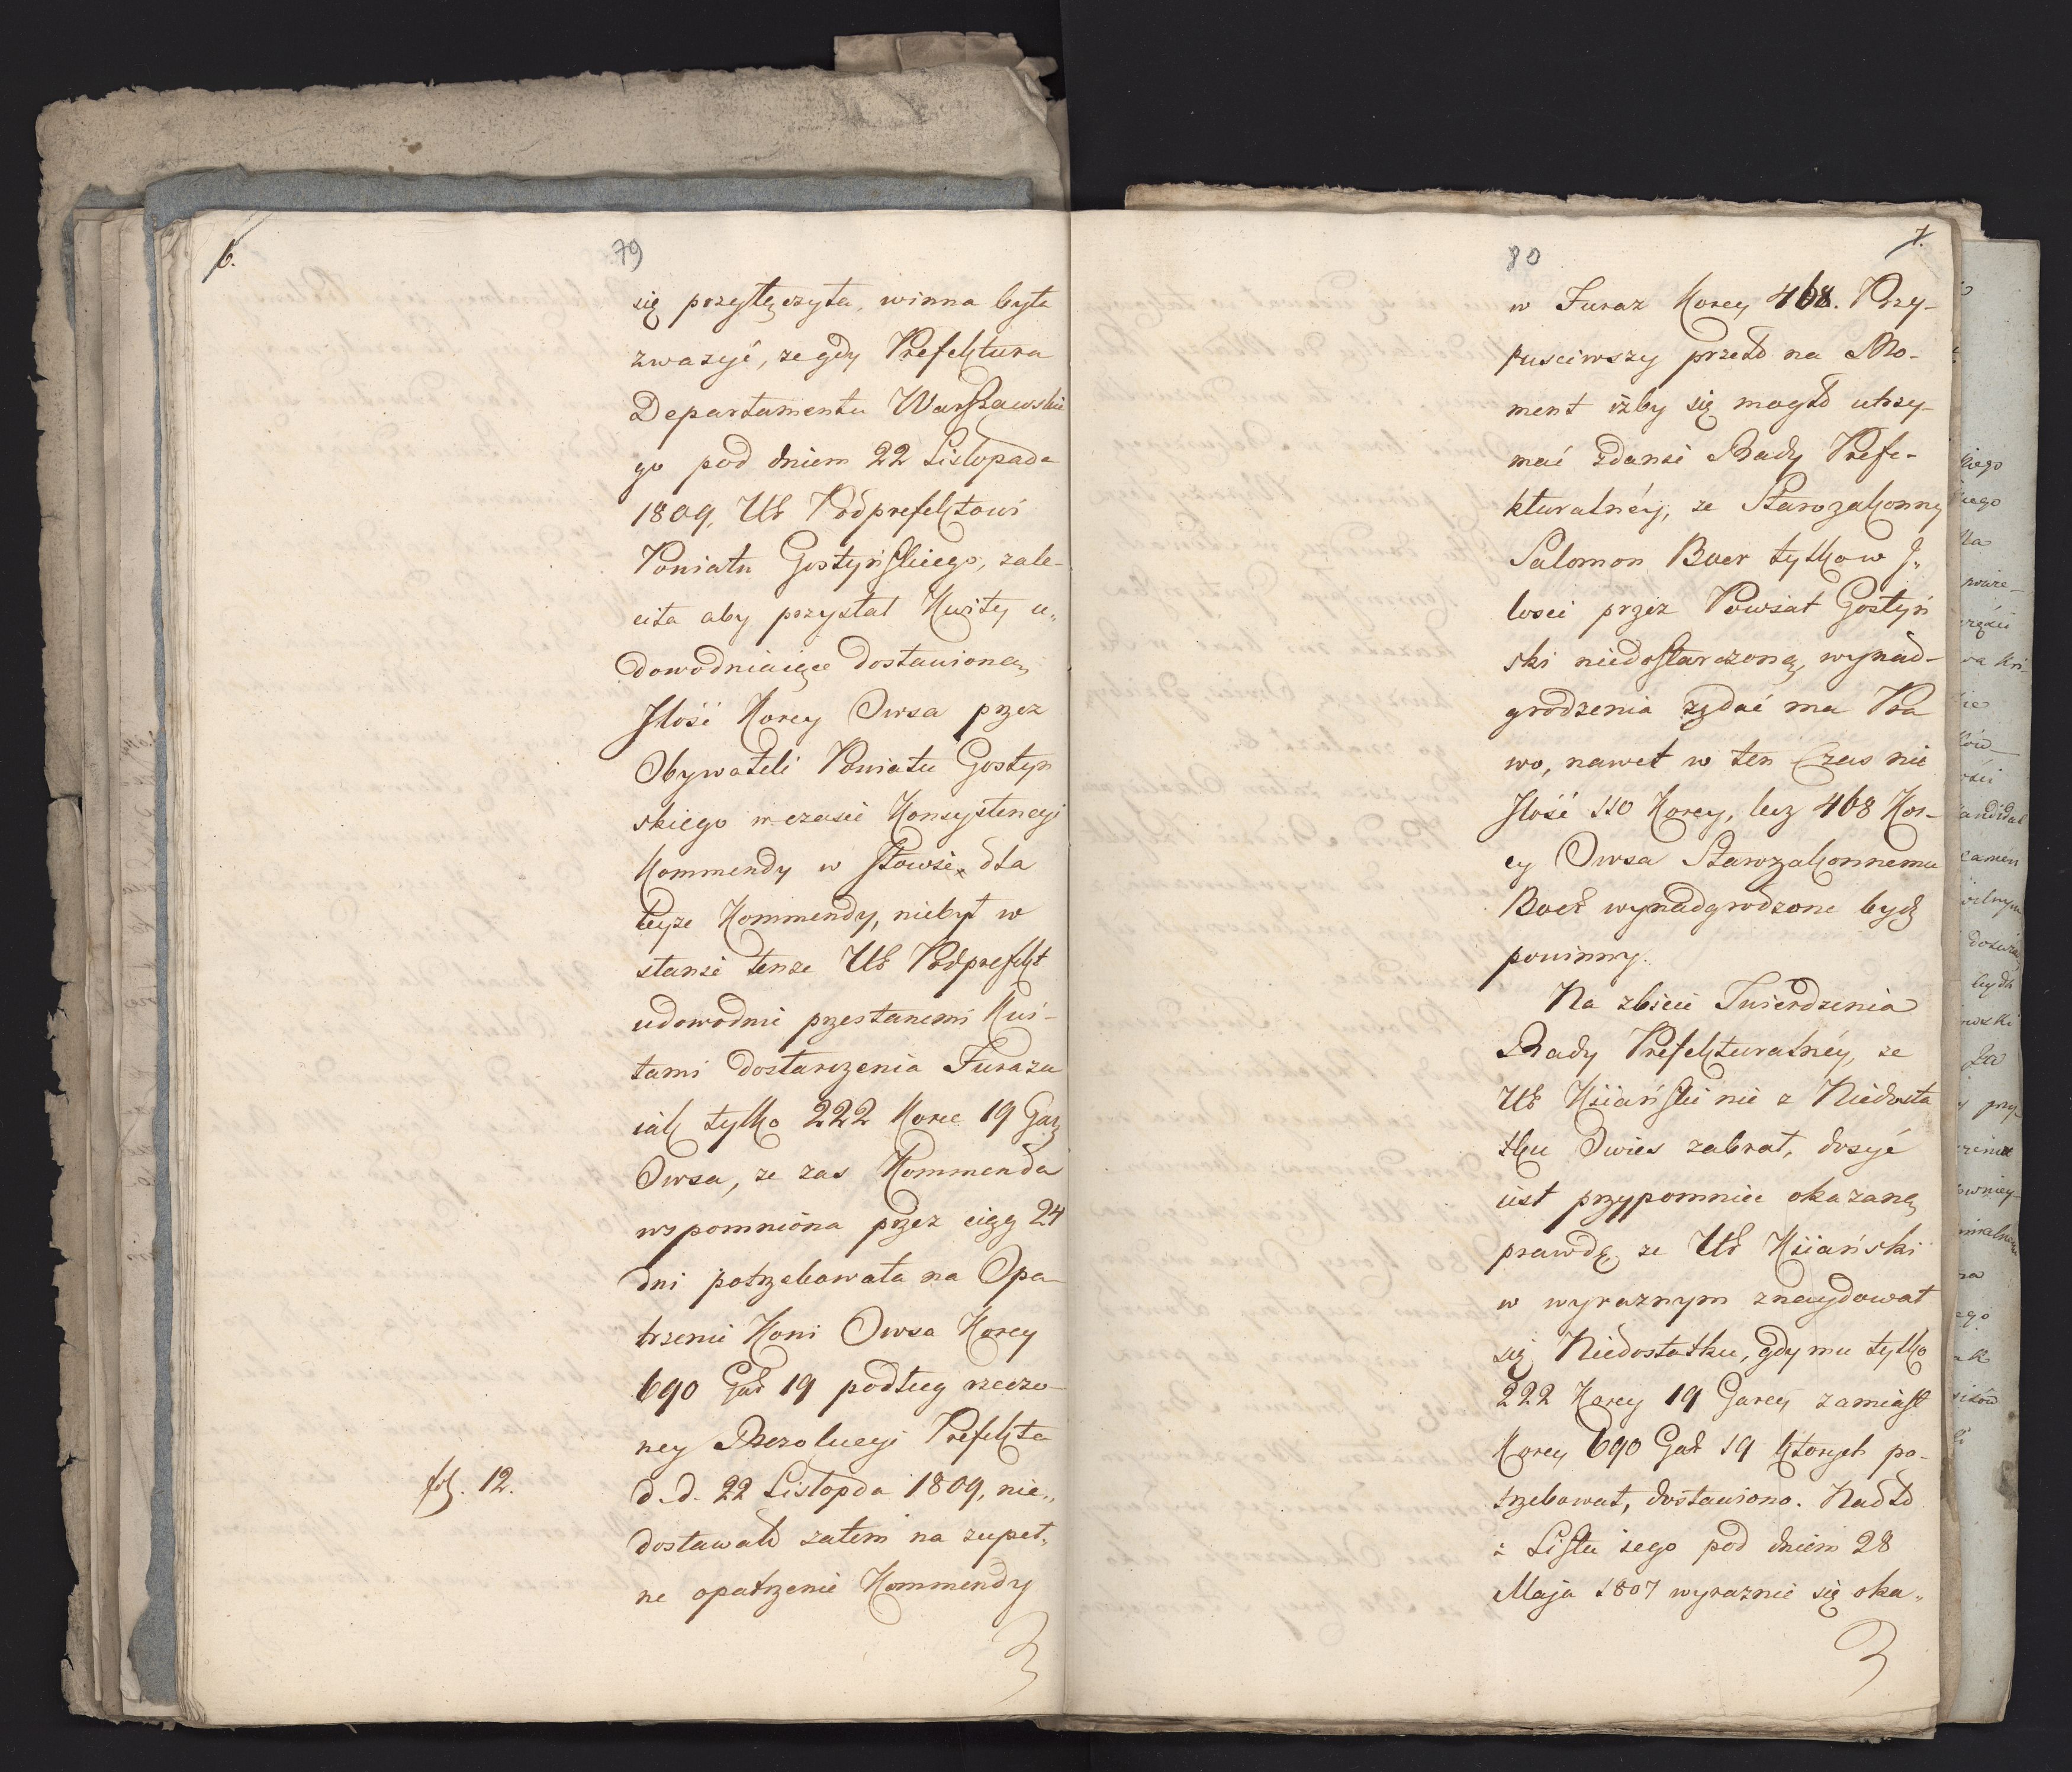 6.
79
się przyłączyła, winna była
zwazyć, ze gdy Prefektura
Departamentu Warszawskie
go pod dniem 22 Listopada
1809, Ur Podprefektowi
Powiatu Gostyńskiego, zale-
ciła aby przysłał Kwity u„
dowodniaiące dostawioną
Jlość Korcy Owsa przez
Obywateli Powiatu Gostyn
skiego w czasie Konsystencyi
Kommendy w Jłowie, dla
teyze Kommendy, niebył w
stanie tenze Ur Podprefekt
udowodnić przesłanemi Kwi-
tami dostarczenia Furazu
iak tylko 222 Korce 19 Gar
Owsa, ze zas Kommenda
wspomniona przez ciąg 24
dni potrzebowała na Opa-
trzenie Koni Owsa Korcy
690 Gar 19 podług rzeczo-
ney Rezolucyi Prefekta
fol. 12.
d.d. 22 Listopda 1809, nie„
dostawało zatem na zupeł„
ne opatrzenie Kommendy
7.
80
w Furaz Korcy 468. Przy-
pusciwszy przeto na Mo-
ment izby się mogło utrzy-
mać zdanie Rady Prefe-
kturalnéy, ze Starozakonny
Salomon Baer tylko w J„
losci przez Powiat Gostyń
ski niedostarczoną, wynad-
grodzenia ządać ma Pra
wo, nawet w ten Czas nie
Jlość 110 Korcy, lecz 468 Kor-
cy Owsa Starozakonnemu
Baer wynadgrodzone bydź
powinny.
Na zbicie Twierdzenia
Rady Prefekturalnéy, ze
Ur Kiiański nie z Niedosta
tku Owies zabrał, dosyć
iest przypomnieć okazaną
prawdę, ze Ur Kiiański
w wyraznym znaydował
się Niedostatku, gdy mu tylko
222 Korcy 19 Garcy zamiast
Korcy 690 Gar 19 ktorych po-
trzebował, dostawiono. Nadto
z Listu iego pod dniem 28
Maja 1807 wyraznie się oka„